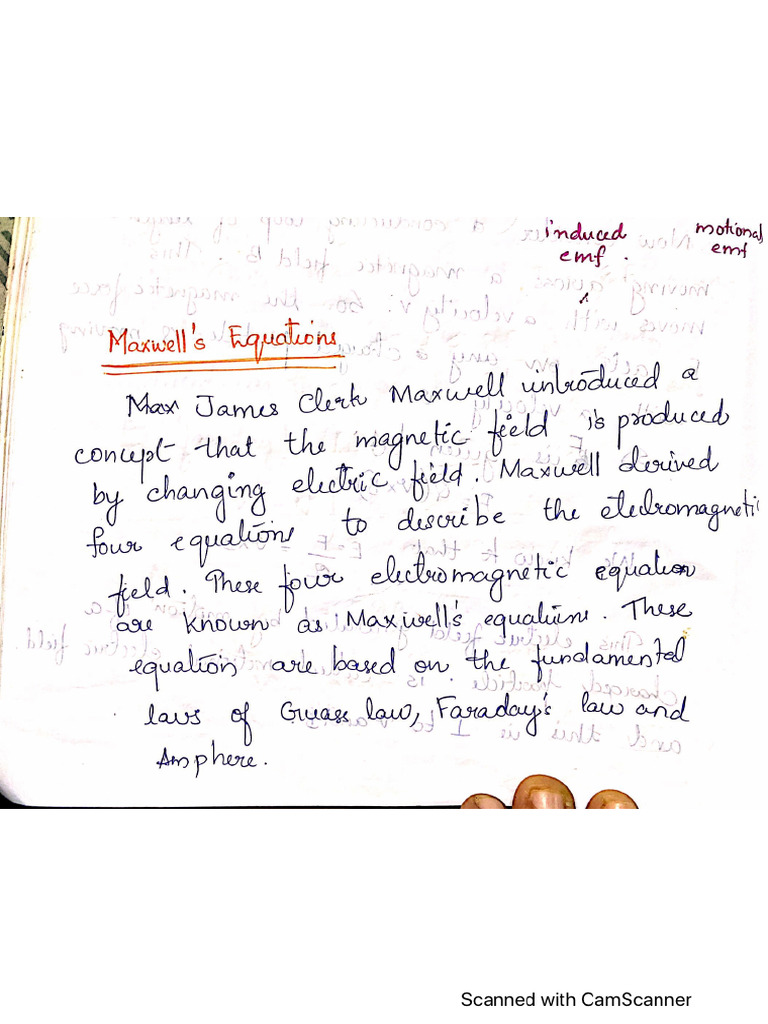 induced
emf.
motional
emf
Maxwell's Equations
Max James Clerk Maxwell introduced a
concept that the magnetic field is produced
by changing electric field. Maxwell derived
four equations to describe the eledromagneti
field. These four electromagnetic equation
are known as Maxwell's equations. These
equation are based on the fundamental
laws of Gwass law, Faraday's law and
Amphere.
Scanned with CamScanner